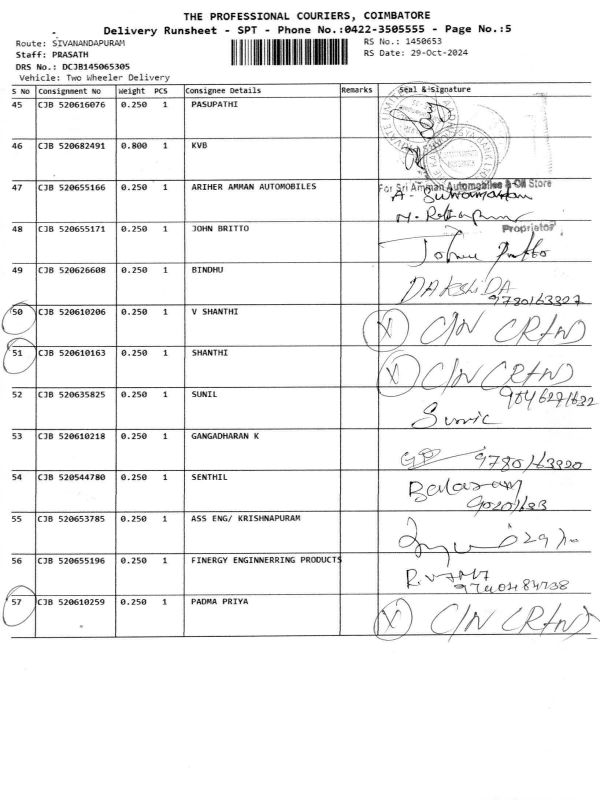 THE PROFESSIONAL COURIERS, COIMBATORE
Delivery Runsheet - SPT - Phone No.:0422-3505555 - Page No.:5
Route: SIVANANDAPURAM
RS No.: 1450653
Staff: PRASATH
RS Date: 29-Oct-2024
DRS No.: DCJB145065305
Vehicle: Two Wheeler Delivery
S No Consignment No Weight PCS Consignee Details Remarks Seal & Signature
45 CJB 520616076 0.250 1 PASUPATHI
46 CJB 520682491 0.800 1 KVB
47 CJB 520655166 0.250 1 ARIHER AMMAN AUTOMOBILES
For Sri Amman Automobiles & Oil Store
48 CJB 520655171 0.250 1 JOHN BRITTO
Proprietor
49 CJB 520626608 0.250 1 BINDHU
50 CJB 520610206 0.250 1 V SHANTHI X C/N
51 CJB 520610163 0.250 1 SHANTHI X C/N
52 CJB 520635825 0.250 1 SUNIL
53 CJB 520610218 0.250 1 GANGADHARAN K
54 CJB 520544780 0.250 1 SENTHIL
55 CJB 520653785 0.250 1 ASS ENG/ KRISHNAPURAM
56 CJB 520655196 0.250 1 FINERGY ENGINNERRING PRODUCTS
57 CJB 520610259 0.250 1 PADMA PRIYA X C/N